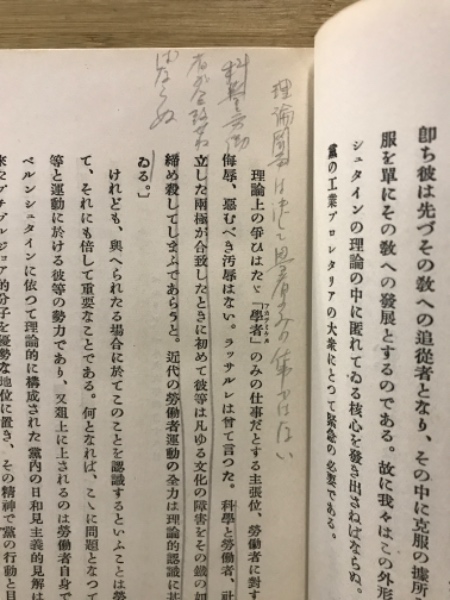 卽ち彼は先づその敎への追從者となり、その中に克服の據所
服を單にその敎への發展とするのである。故に我々はこの外形
シュタインの理論の中に匿れてゐる核心を發き出さねばならぬ。
黨の工業プロレタリアの大衆にとつて緊急の必要である。
理論鬪爭は決して學者のみの事ではない
科學と勞働
者が合致せね
ばならぬ
理論上の爭ひはたゞ「學者」のみの仕事だとする主張位、勞働者に對す
アカデミカル
侮辱、惡むべき汚辱はない。ラッサルレは曾て言つた。科學と勞働者、社
立した兩極が合致したときに初めて彼等は凡ゆる文化の障害をその鐵の如
締め殺してしまふであらうと。近代の勞働者運動の全力は理論的認識に基
ゐる。」
けれども、與へられたる場合に於てこのことを認識するといふことは勞
て、それにも倍して重要なことである。何となれば、こゝに問題となつて
等と運動に於ける彼等の勢力であり、又爼上に上されるのは勞働者自身で
ベルンシュタインに依つて理論的に構成された黨內の日和見主義的見解は
來たプチブルジョア的分子を優勢な地位に置き、その精神で黨の行動と目